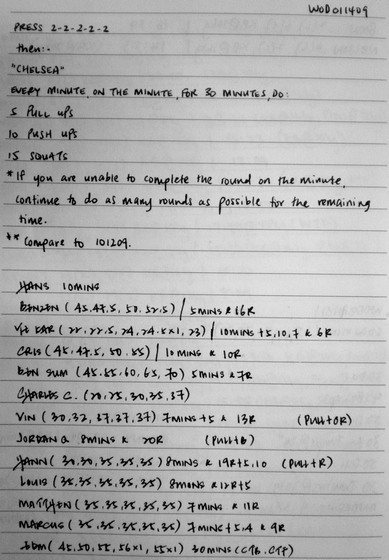 WOD 011409
PRESS 2-2-2-2-2
then:-
"CHELSEA"
EVERY MINUTE, ON THE MINUTE, FOR 30 MINUTES, DO:
5 PULL UPS
10 PUSH UPS
15 SQUATS
* If you are unable to complete the round on the minute,
continue to do as many rounds as possible for the remaining
time.
** Compare to 101209.
HANS 10MINS
(45, 47.5, 50, 52.5) / 5MINS & 16R
(22, 22.5, 24, 24.5x1, 23) / 10MINS +5,10,7 & 6R
CRIS (45, 47.5, 50, 55) / 10MINS & 10R
BEN SUM (45, 55, 60, 65, 70) 5MINS & 7R
CHARLES C. (20, 25, 30, 35, 37)
VIN (30, 32, 37, 37, 37) 7MINS +5 & 13R
JORDAN Q 8MINS & 20R
(30, 30, 35, 35, 35) 8MINS & 19R+5,10
LOUIS (35, 35, 35, 35, 35) & 12R+5
(35, 35, 35, 35, 35) 7MINS & 11R
MARCUS (35, 35, 35, 35, 35) 7MINS +5,4 & 9R
(45, 50, 55, 56x1, 55x1) 30MINS